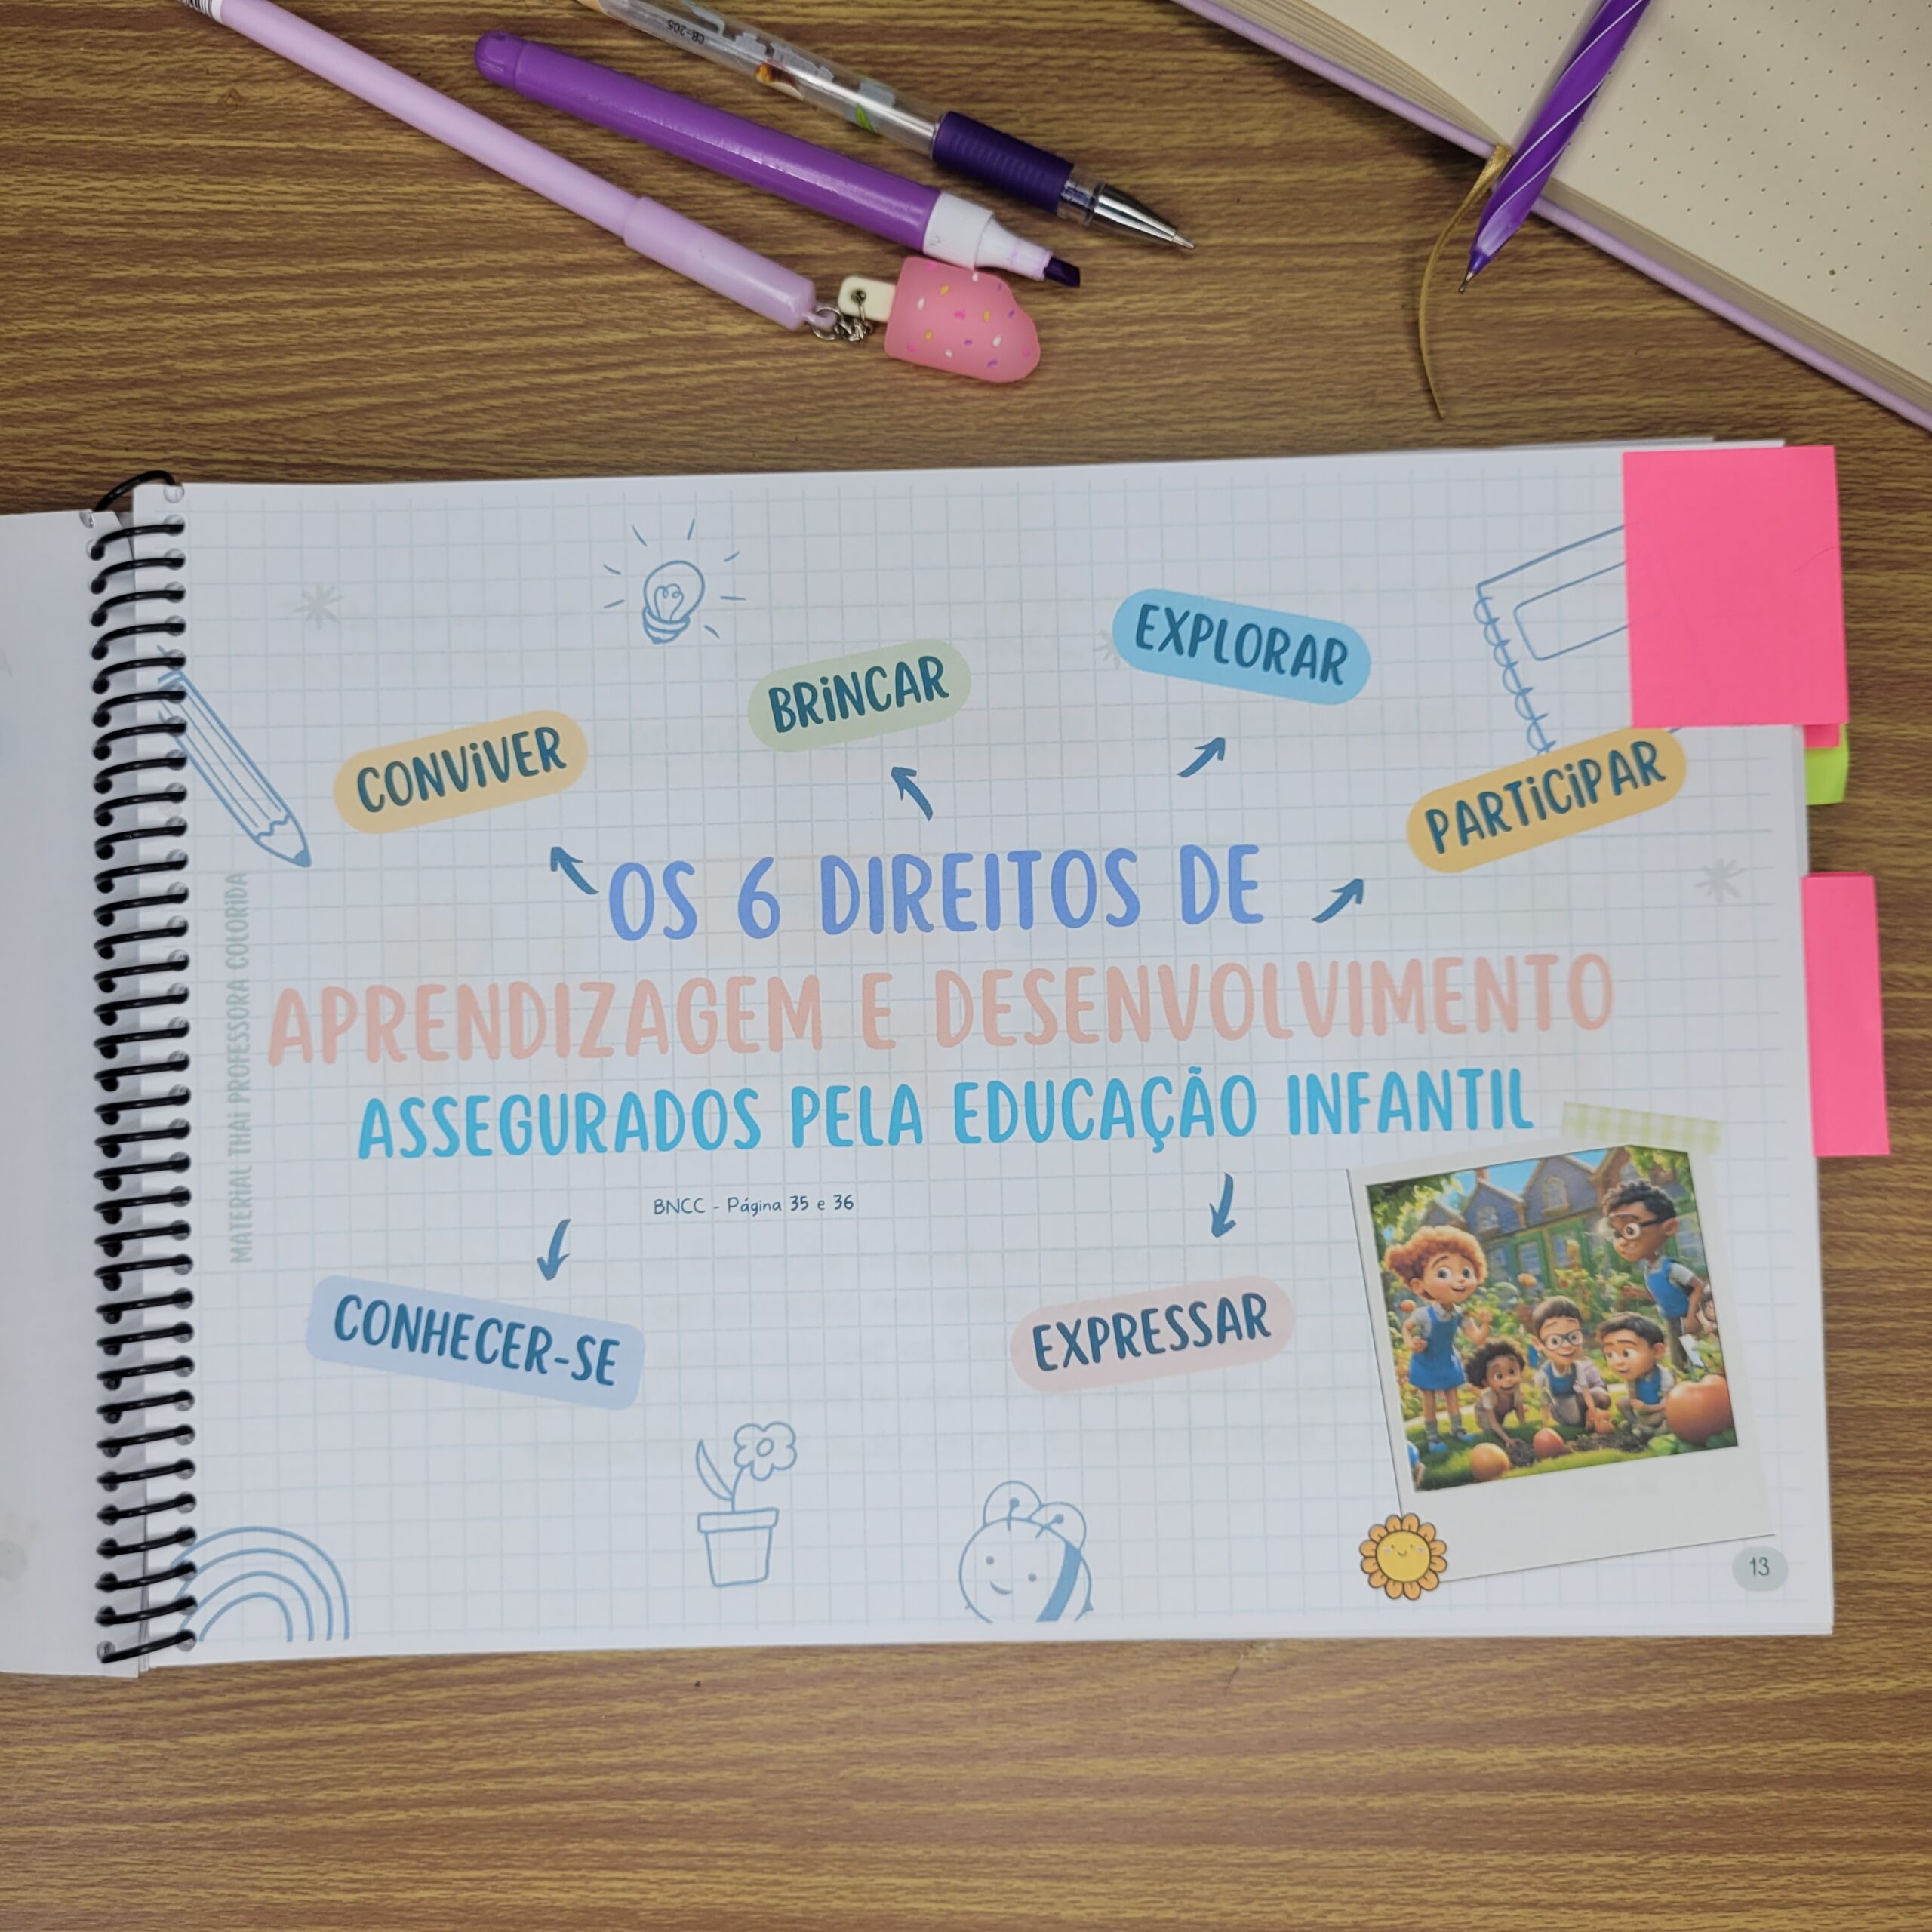 CB-205
EXPLORAR
BRINCAR
CONVIVER
PARTICIPAR
OS 6 DIREITOS DE
APRENDIZAGEM E DESENVOLVIMENTO
ASSEGURADOS PELA EDUCAÇÃO INFANTIL
BNCC - Página 35 e 36
CONHECER-SE
EXPRESSAR
MATERIAL THAI PROFESSORA COLORIDA
13